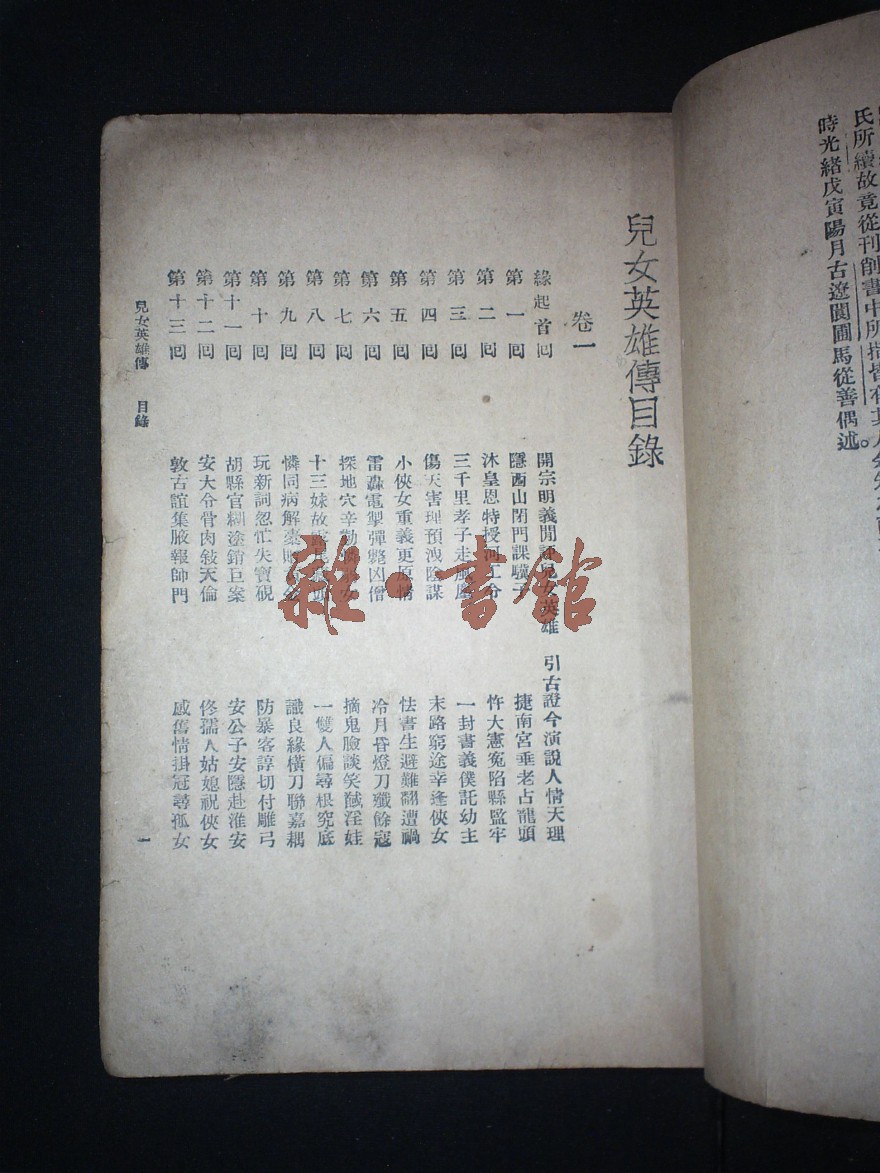 氏所續故竟從刊削書中所指皆有其人
時光緒戊寅陽月古遼閬圃馬從善偶述。
兒女英雄傳目錄
卷一
緣起首回 開宗明義閒評兒女英雄 引古證今演說人情天理
第一回 隱西山閉門課驥子 捷南宮垂老占龍頭
第二回 沐皇恩特授河工 忤大憲冤陷縣監牢
第三回 三千里孝子走風塵 一封書義僕託幼主
第四回 傷天害理預洩陰謀 末路窮途幸逢俠女
第五回 小俠女重義更原情 怯書生避難翻遭禍
第六回 雷轟電掣彈斃凶僧 冷月昏燈刀殲餘寇
第七回 探地穴辛勤 女 摘鬼臉談笑馘淫娃
第八回 十三妹故露尾 頭 一雙人偏尋根究底
第九回 憐同病解橐贈 金 識良緣橫刀聯嘉耦
第十回 玩新詞忽忙失寶硯 防暴客諄切付雕弓
第十一回 胡縣官糊塗銷巨案 安公子安隱赴淮安
第十二回 安大令骨肉敍天倫 佟孺人姑媳祝俠女
第十三回 敦古誼集腋報師門 感舊情掛冠尋孤女
兒女英雄傳 目錄
一
雜·書館